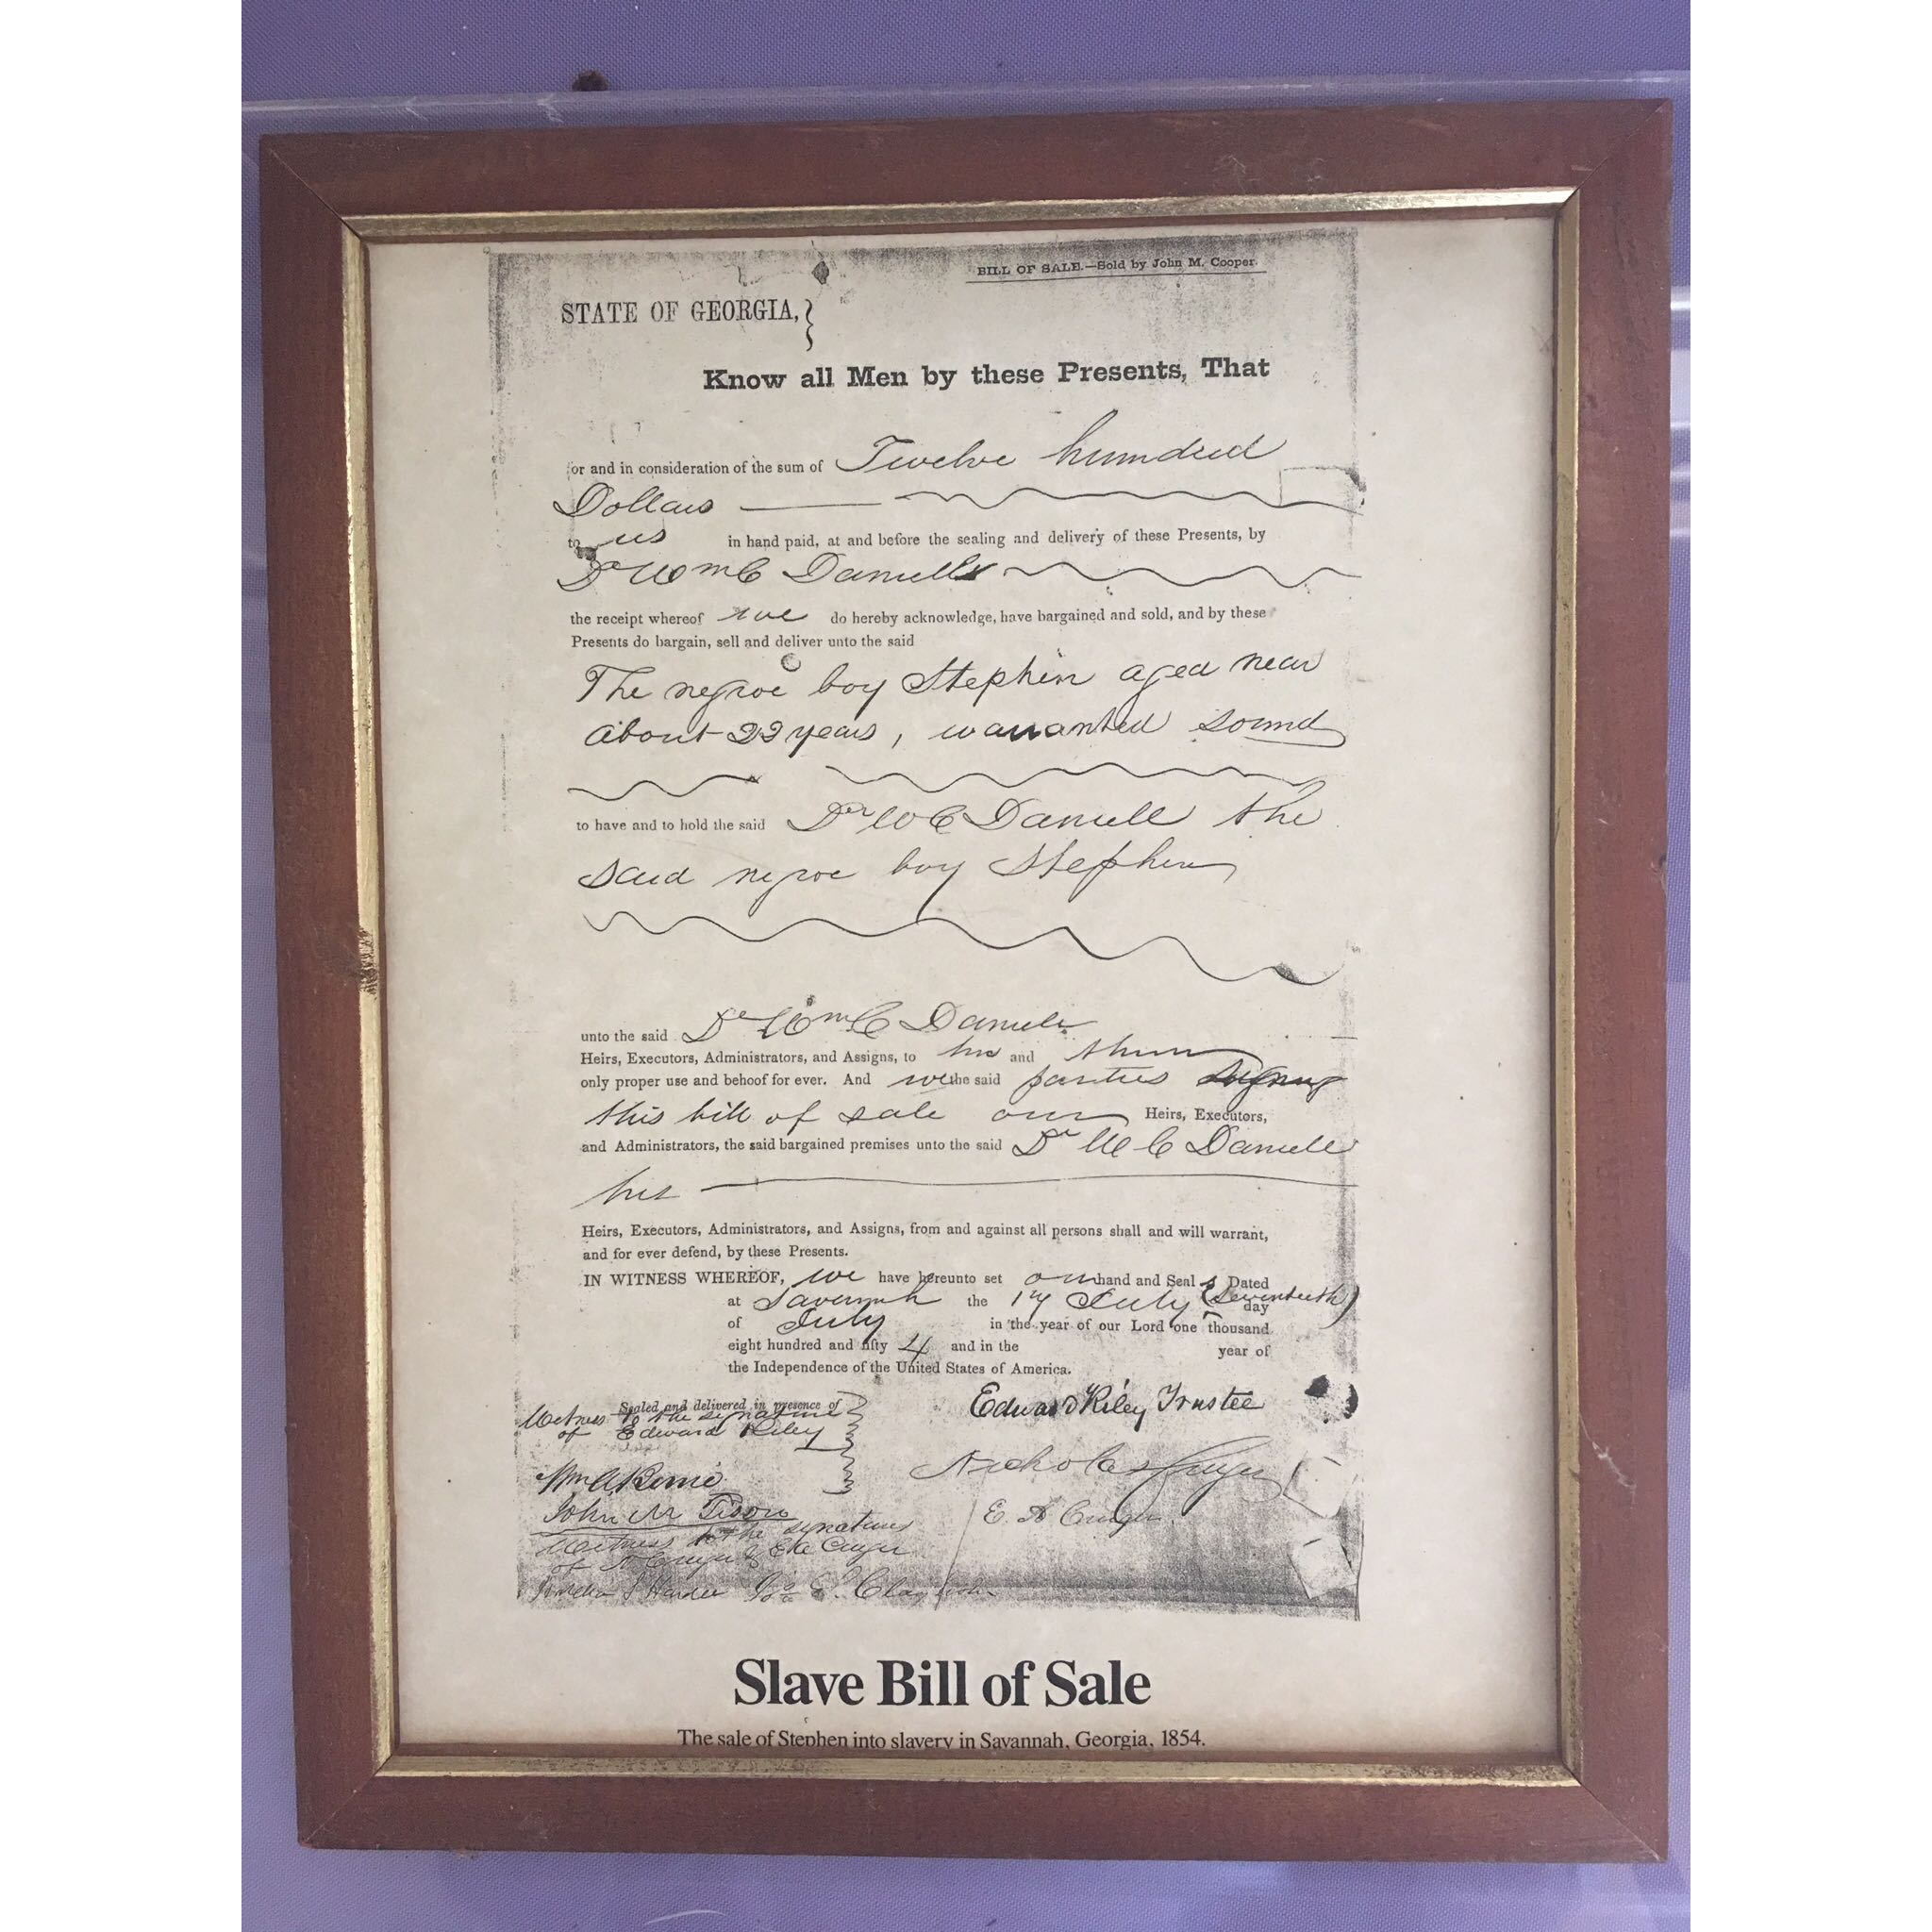 BILL OF SALE.—Sold by John M. Cooper.
STATE OF GEORGIA,
Know all Men by these Presents, That
for and in consideration of the sum of Twelve hundred
Dollars
to us in hand paid, at and before the sealing and delivery of these Presents, by
Dr Wm C Daniell
the receipt whereof we do hereby acknowledge, have bargained and sold, and by these
Presents do bargain, sell and deliver unto the said
The negroe boy Stephen aged near
about 22 years, warranted sound
to have and to hold the said Dr W C Daniell the
said negroe boy Stephen
unto the said Dr Wm C Daniell
Heirs, Executors, Administrators, and Assigns, to his and their
only proper use and behoof for ever. And we the said parties signing
this bill of sale our Heirs, Executors,
and Administrators, the said bargained premises unto the said Dr W C Daniell
his
Heirs, Executors, Administrators, and Assigns, from and against all persons shall and will warrant,
and for ever defend, by these Presents.
IN WITNESS WHEREOF, we have hereunto set our hand and Seals Dated
at Savannah the 17 July (Seventeenth) day
of July in the year of our Lord one thousand
eight hundred and fifty 4 and in the year of
the Independence of the United States of America.
Sealed and delivered in presence of
Witness to the signature
of Edward Riley
Edward Riley Trustee
Nicholas Cruger
E. A Cruger
Wm A
John M
Witness to the signatures
of N Cruger & E A Cruger
Slave Bill of Sale
The sale of Stephen into slavery in Savannah, Georgia, 1854.